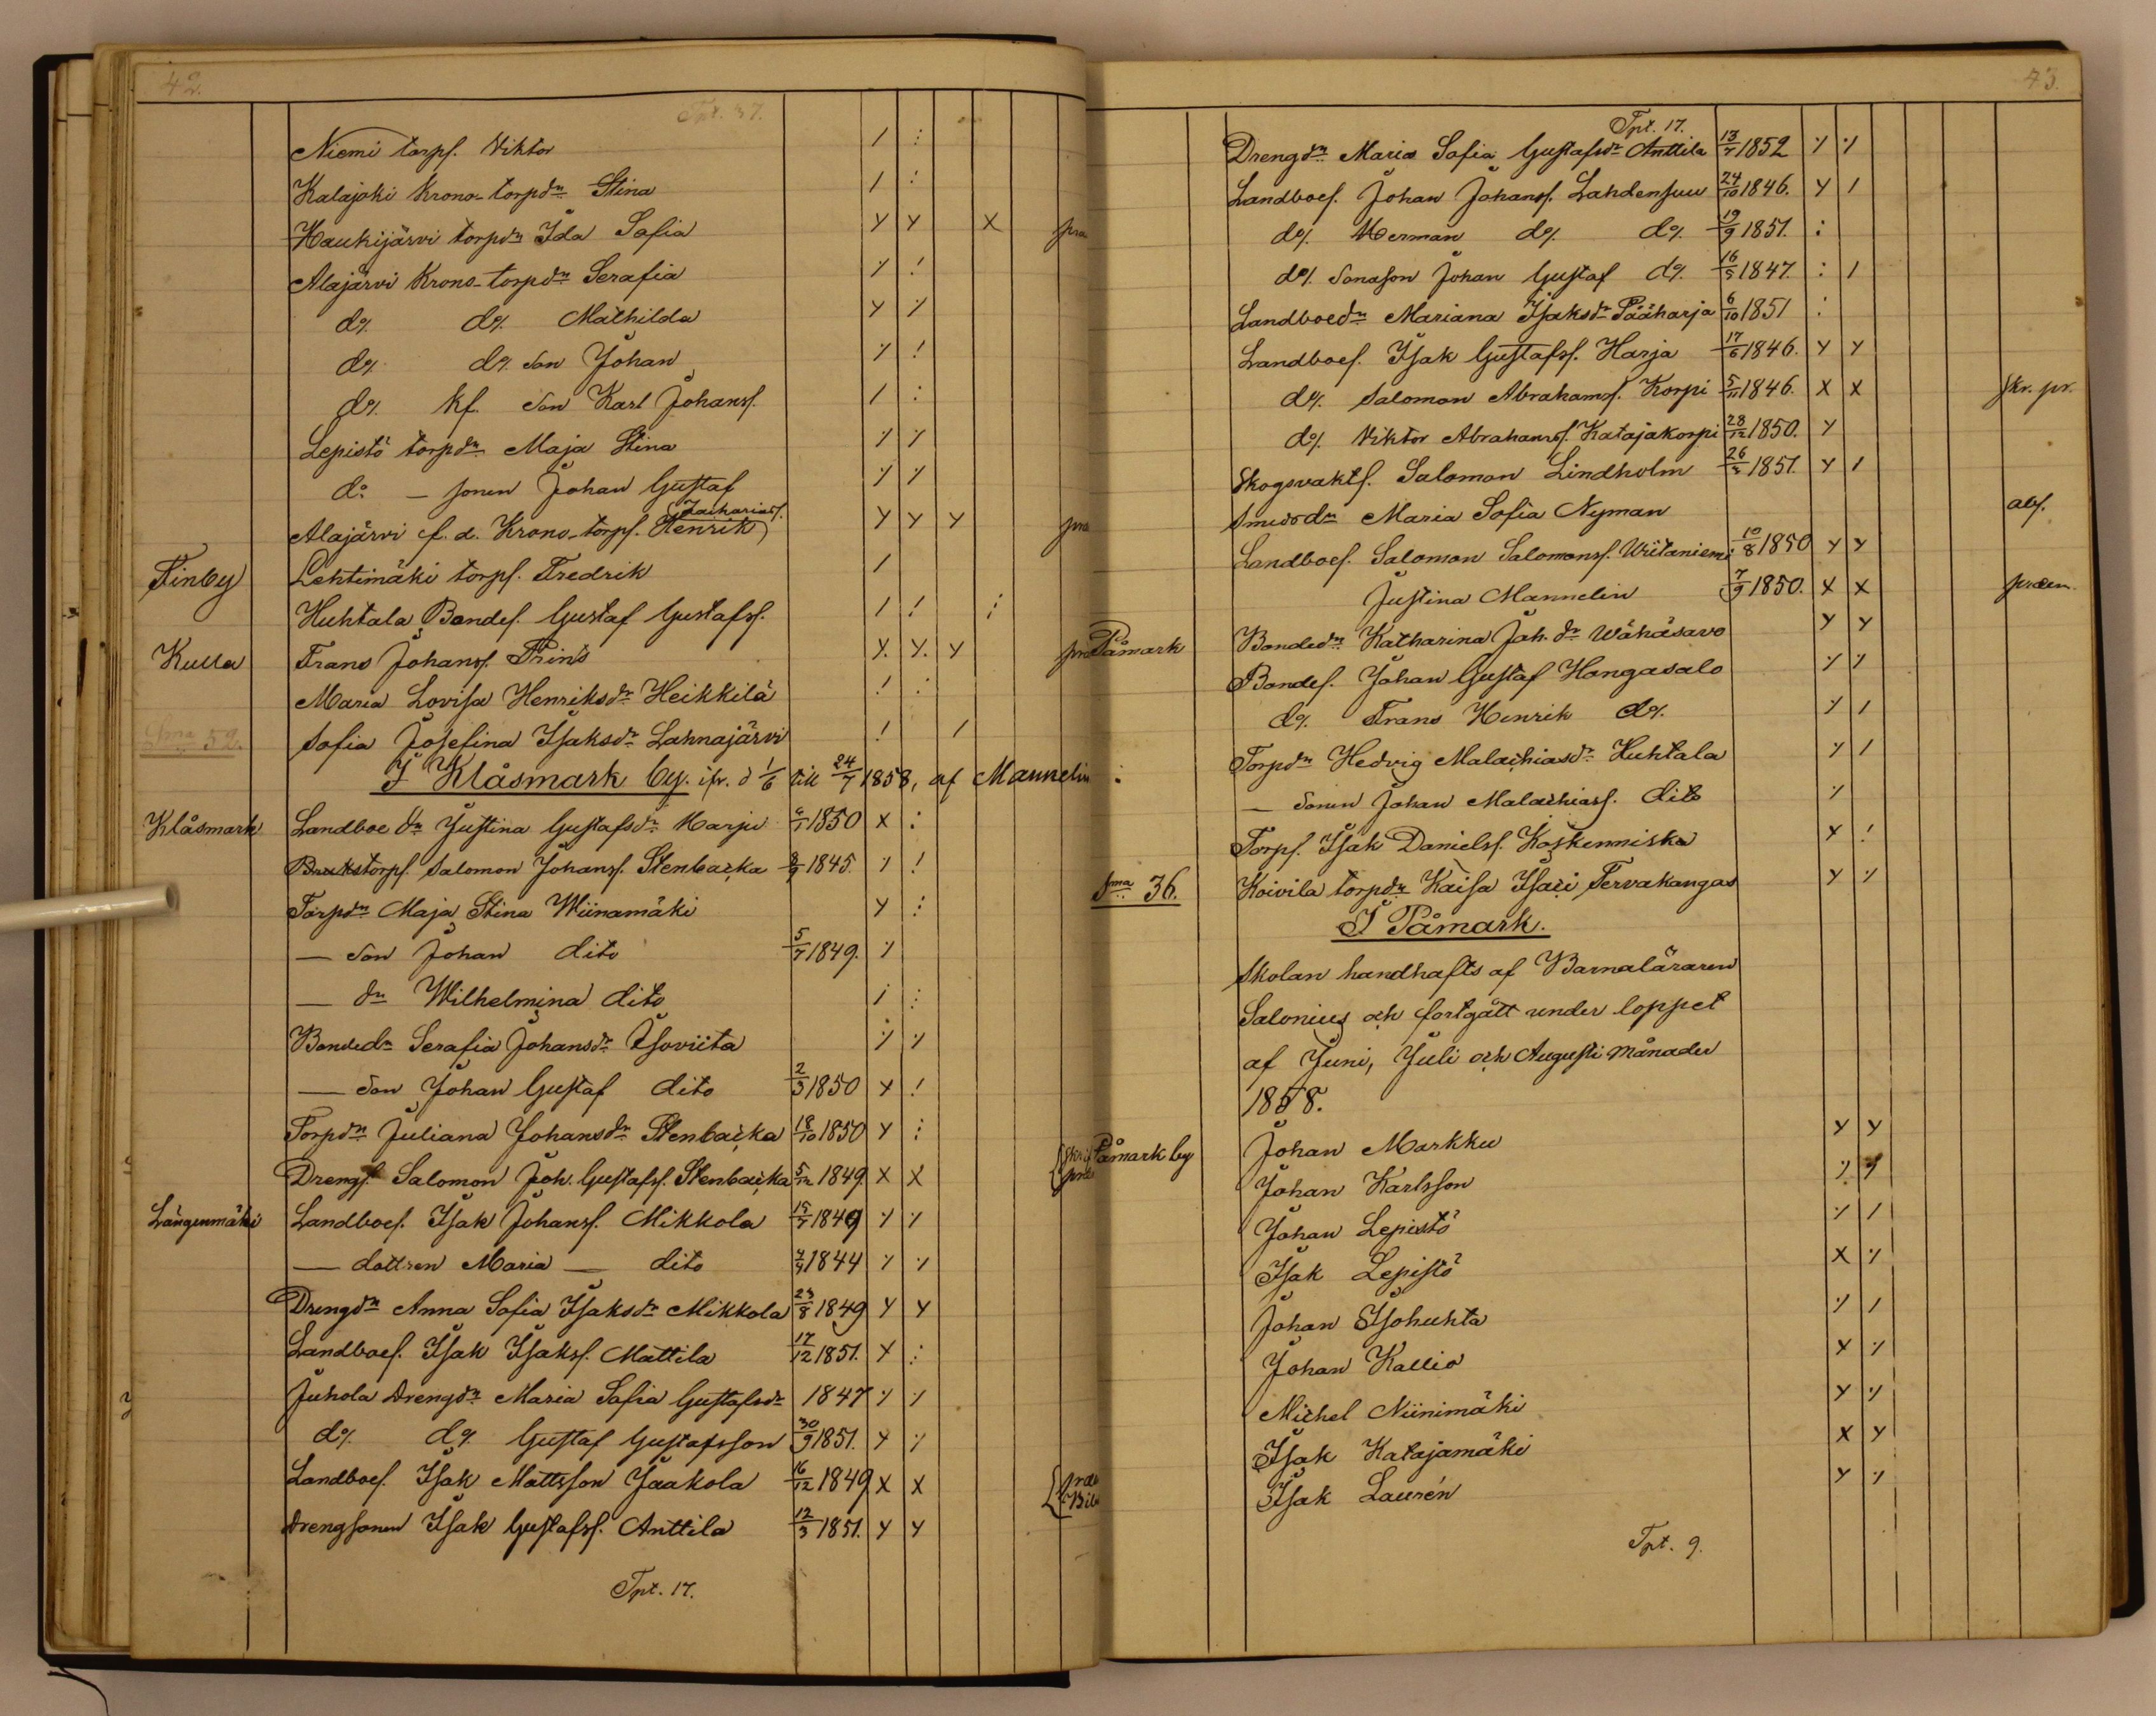 42.
Tpt. 37.
Niemi torps. Viktor / :
Kalajoki Krono-torpdr Stina / :
Haukijärvi torpdr Ida Sofia Y Y X pra
Alajärvi Krono-torpdr Serafia ·/· !
d:o d:o Mathilda Y ·/·
d:o d:o son Johan ·/· !
d:o kf. son Karl Johanss. / :
Lepistö torpdr Maja Stina ·/· ·/·
d:o — sonen Johan Gustaf ·/· ·/·
Zachariass.
Alajärvi f. d. Krono-torps. Henrik Y Y Y pra
Finby Lehtimäki torps. Fredrik /
Huhtala Bondes. Gustaf Gustafss. / ! :
Kulla Frans Johanss. Prins Y. Y. Y pra
Maria Lovisa Henriksdr Heikkilä ! :
Sma 52. Sofia Josefina Isaksdr Lahnajärvi ! /
I Klåsmark by. ifr. d 1/6 till 24/7 1858, af Mannelin :
Klåsmark Landboe dr Justina Gustafsdr Harju 1850 X :
Brukstorps. Salomon Johanss. Stenbacka 1845. ·/· !
Torpdr Maja Stina Wiinamäki Y :
— son Johan dito 5/7 1849. ·/·
— dr Wilhelmina dito / :
Bondedr Serafia Johansdr Isoviita ·/· ·/·
— son Johan Gustaf dito 2/3 1850 Y !
Torpdr Juliana Johansdr Stenbacka 18/10 1850 Y :
Drengs. Salomon Joh. Gustafss. Stenbacka 5/12 1849. X X
Långenmäki Landboes. Isak Johanss. Mikkola 15/7 1849 ·/· ·/·
— dottren Maria — dito 1844 ·/· ·/·
Drengdr Anna Sofia Isaksdr Mikkola 23/8 1849 Y Y
Landboes. Isak Isakss. Mattila 17/12 1851. Y :
Juhola Drengdr Maria Sofia Gustafsdr 1847 ·/· ·/·
d:o d:o Gustaf Gustafsson 30/9 1851. Y ·/·
Landboes. Isak Mattsson Jaakola 16/12 1849 X X
Drengsonen Isak Gustafss. Anttila 12/3 1851. Y Y
Tpt. 17.
43.
Tpt. 17.
Drengdr Maria Sofia Gustafsdr Anttila 13/7 1852 ·/· ·/·
Landboes. Johan Johanss. Lahdensuu 24/10 1846. Y /
d:o Herman d:o d:o 19/9 1851. :
d:o Sonason Johan Gustaf d:o 16/5 1847. : /
Landboedr Mariana Isaksdr Pääharja 6/10 1851 :
Landboes. Isak Gustafss. Harja 17/6 1846. Y Y
d:o Salomon Abrahamss. Korpi 5/11 1846. X X skr. pr.
d:o Viktor Abrahamss. Katajakorpi 28/12 1850. Y
Skogsvakts. Salomon Lindholm 1851. Y /
Smedsdr Maria Sofia Nyman abs.
Landboes. Salomon Salomonss. Wiitaniemi 10/8 1850 Y Y
Justina Mannelin 7/9 1850. X X præm.
Påmark Bondedr Katharina Joh. dr Wähäsavo Y Y
Bondes. Johan Gustaf Hongasalo ·/· ·/·
d:o Frans Henrik d:o ·/· /
Torpdr Hedvig Malachiasdr Huhtala ·/· /
— Sonen Johan Malachiass. dito ·/·
Torps. Isak Danielss. Koskenniska Y !
Sma 36. Koivila torpdr Kaisa Isaci Tervakangas Y ·/·
I Påmark.
Skolan handhafts af Barnaläraren
Salonius och fortgått under loppet
af Juni, Juli och Augusti månader
1858.
Påmark by Johan Markku Y Y
Johan Karlsson ·/· ·/·
Johan Lepistö ·/· /
Isak Lepistö X ·/·
Johan Isohuhta ·/· /
Johan Kallio X ·/·
Michel Niinimäki Y ·/·
Isak Katajamäki X Y
Isak Laurén Y ·/·
Tpt. 9.